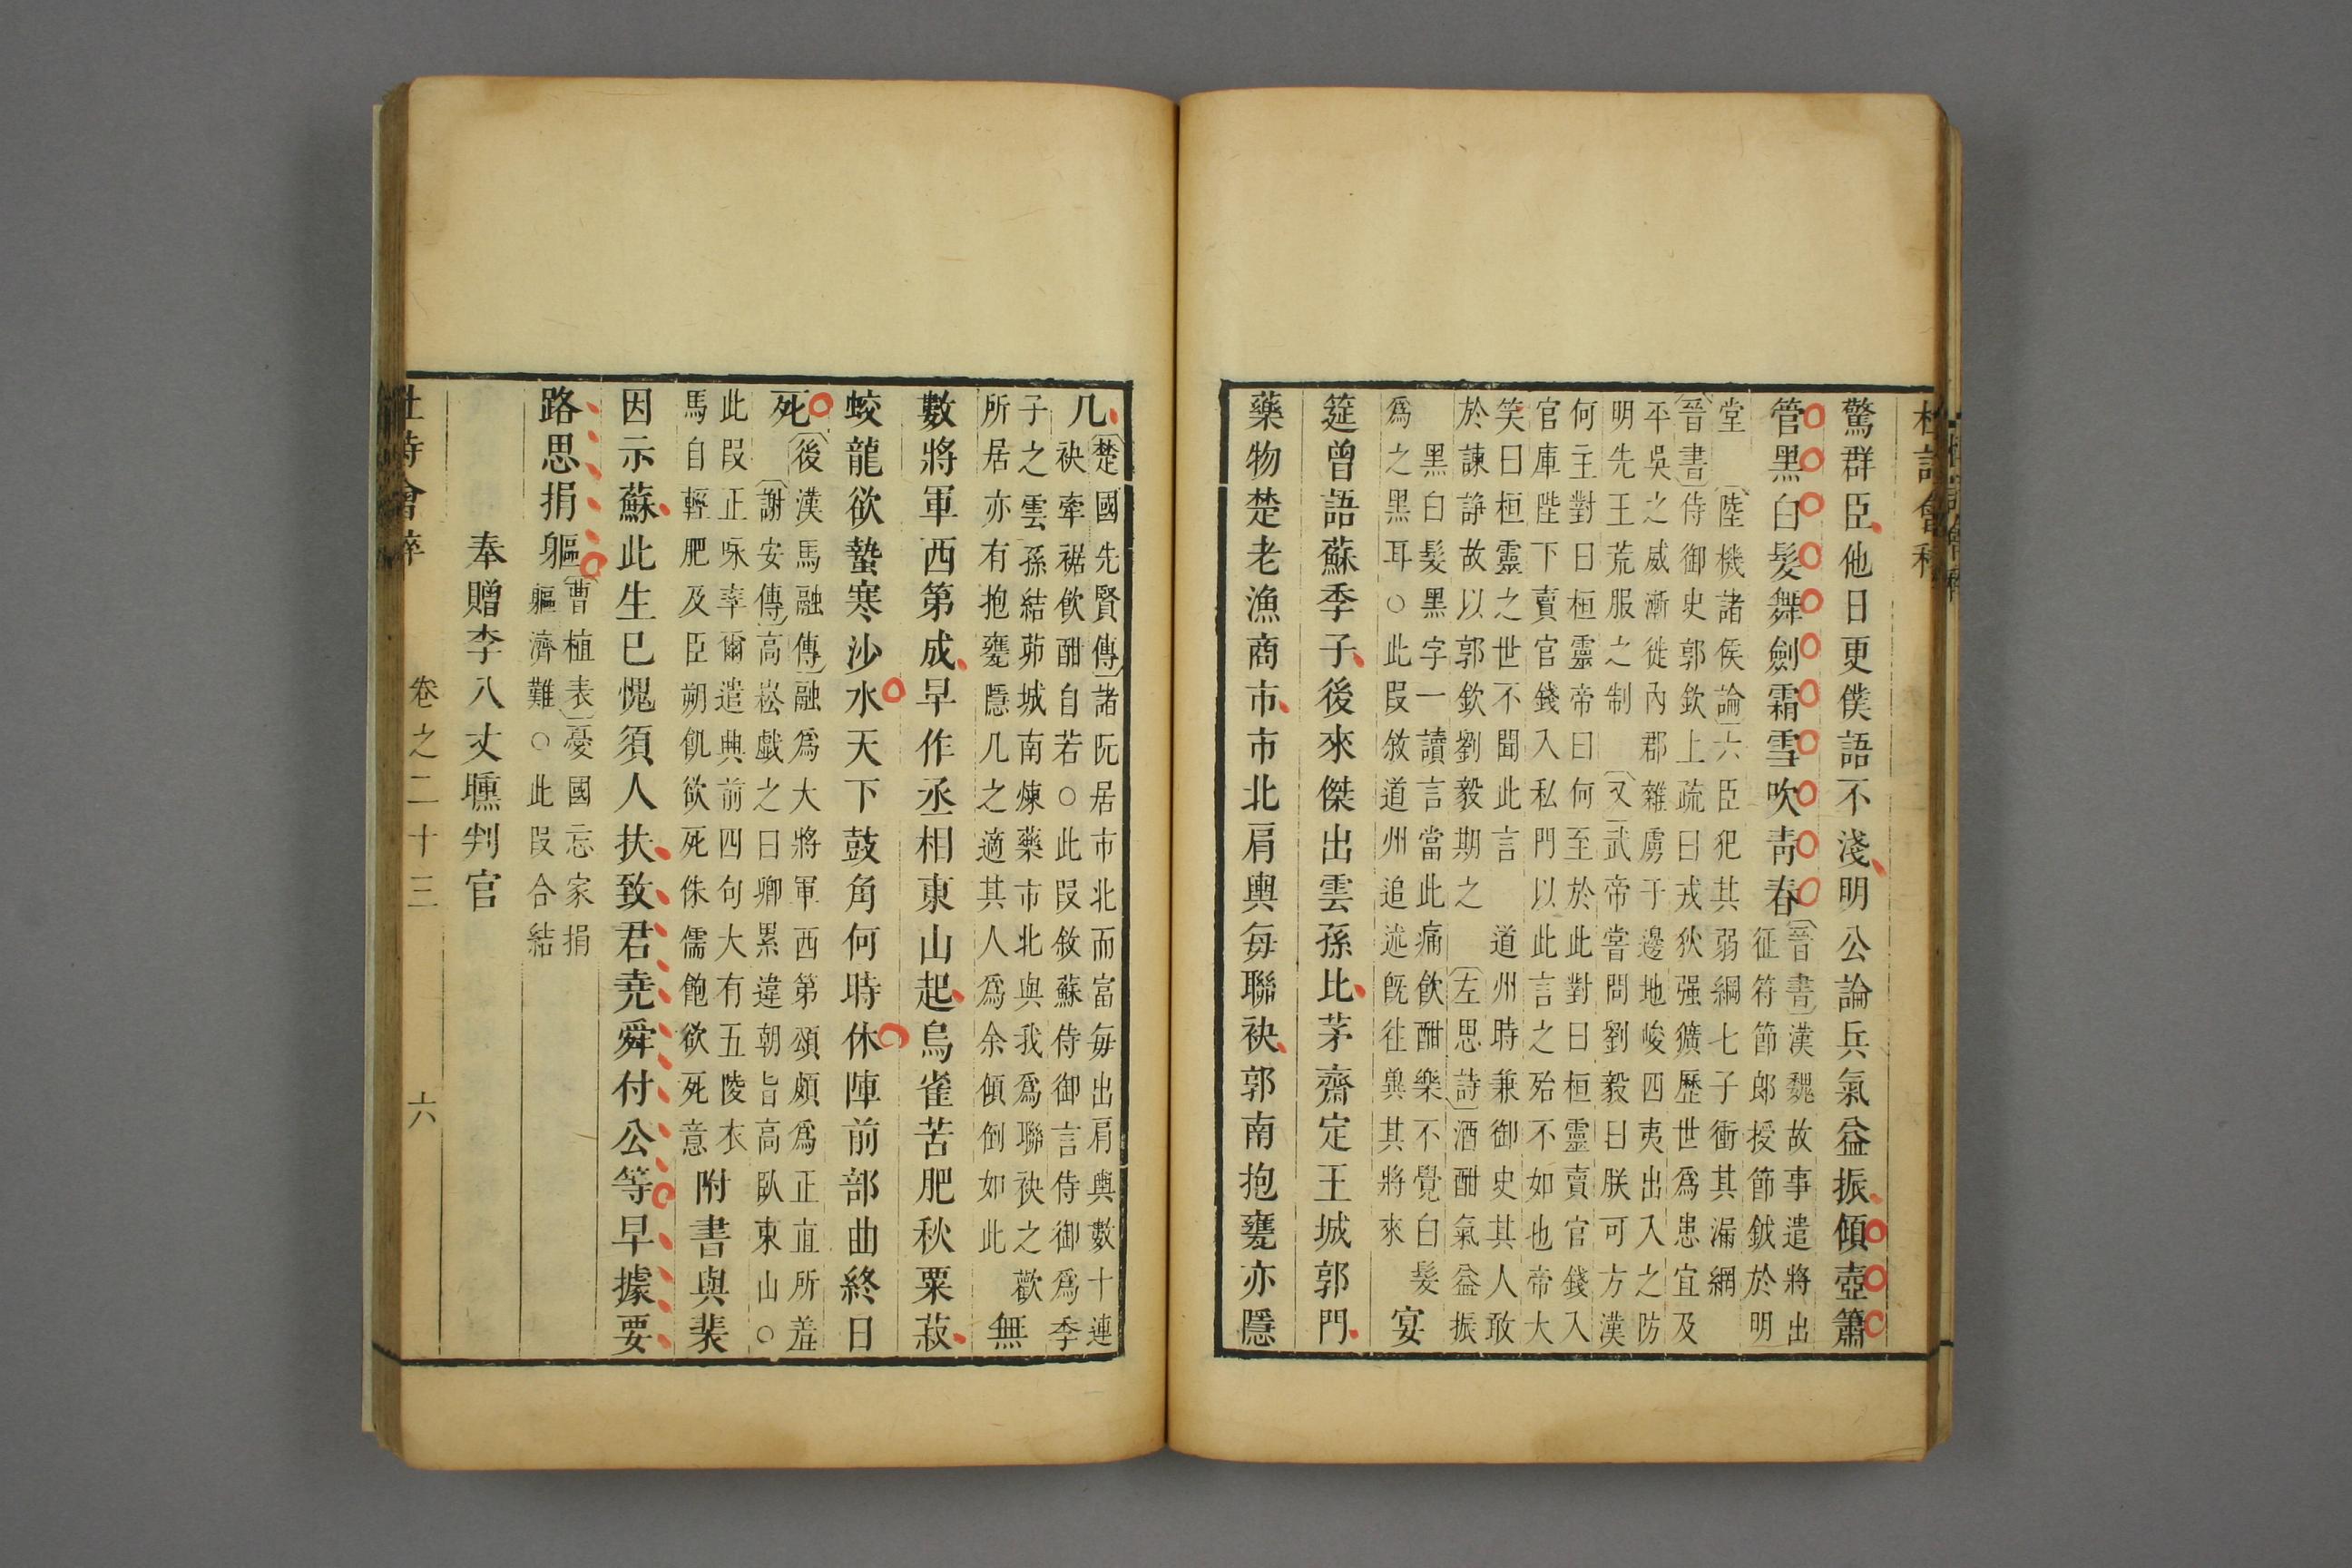 驚群臣他日更僕語不淺明公論兵氣益振傾壺簫
管黑白髮舞劍霜雪吹青春〔晉書〕漢魏故事遣將出
征符節郎授節鉞於明
堂〔陸機諸侯論〕六臣犯其弱綱七子衝其漏網
〔晉書〕侍御史郭欽上疏曰戎狄强獷歷世爲患宜及
平吳之威漸徙內郡雜虜于邊地峻四夷出入之防
明先王荒服之制〔又〕武帝嘗問劉毅曰朕可方漢
何主對曰桓靈帝曰何至於此對曰桓靈賣官錢入
官庫陛下賣官錢入私門以此言之殆不如也帝大
笑曰桓靈之世不聞此言道州時兼御史其人敢
於諫諍故以郭欽劉毅期之〔左思詩〕酒酣氣益振
黑白髮黑字一讀言當此痛飮酣樂不覺白髮
爲之黑耳○此叚敘道州追述旣往與其將來
宴
筵曾語蘇季子後來傑出雲孫比茅齋定王城郭門
藥物楚老漁商市市北肩輿每聯袂郭南抱甕亦隱
几〔楚國先賢傳〕諸阮居市北而富每出肩輿數十連
袂牽裾飮酣自若○此叚敘蘇侍御言侍御爲季
子之雲孫結茆城南煉藥市北與我爲聯袂之歡
所居亦有抱甕隱几之適其人爲余傾倒如此
無
數將軍西第成早作丞相東山起鳥雀苦肥秋粟菽
蛟龍欲蟄寒沙水天下鼓角何時休陣前部曲終日
死〔後漢馬融傳〕融爲大將軍西第頌頗爲正直所羞
〔謝安傳〕高崧戯之曰卿累違朝旨高臥東山○
此叚正咏率爾遣興前四句大有五陵衣
馬自輕肥及臣朔飢欲死侏儒飽欲死意
附書與裴
因示蘇此生已愧須人扶致君堯舜付公等早據要
路思捐軀〔曹植表〕憂國忘家捐
軀濟難○此叚合結
奉贈李八丈曛判官
卷之二十三
六